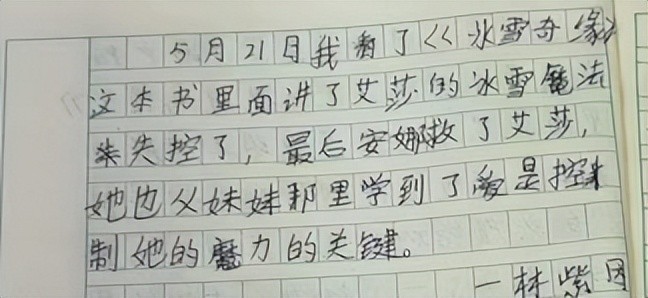 5月21日我看了《冰雪奇缘》
这本书里面讲了艾莎的冰雪魔法
失控了，最后安娜救了艾莎，
她也从妹妹那里学到了爱是控
制她的魔力的关键。
一林紫